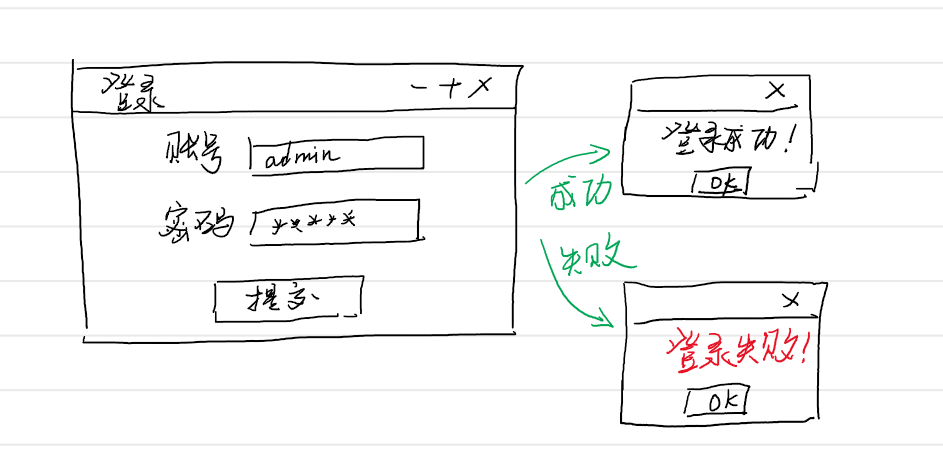 登录 - + ×
账号 admin
密码 *****
提交
成功
失败
×
登录成功!
OK
×
登录失败!
OK